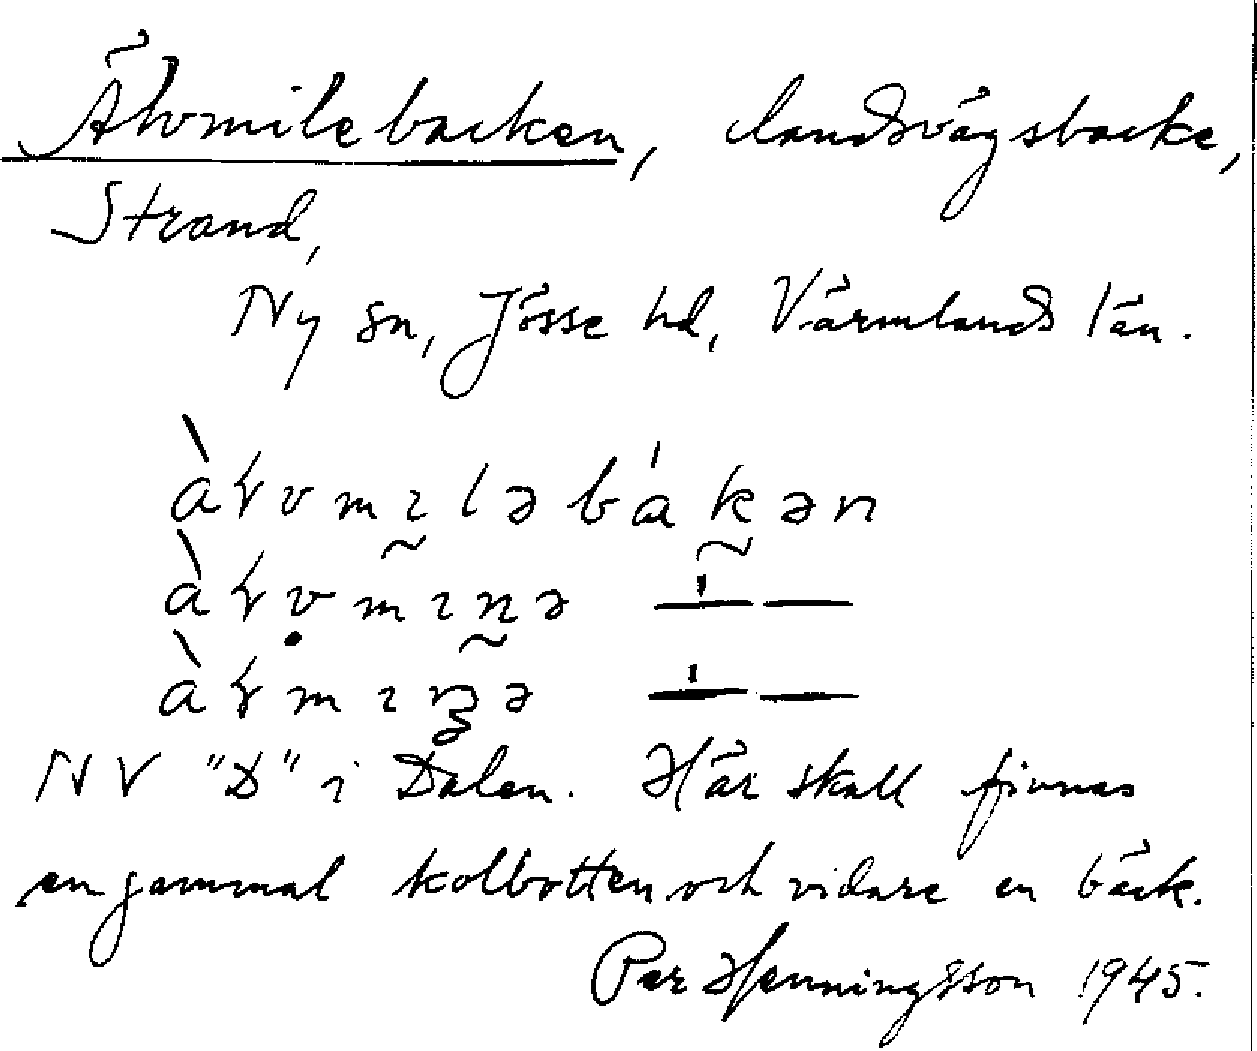 Älvmilebacken, landsvägsbacke,
Strand,
Ny sn, Jösse hd, Värmlands län.
NV "D" i Dalen. Här skall finnas
en gammal kolbotten och vidare en bäck.
Per Henningsson 1945.